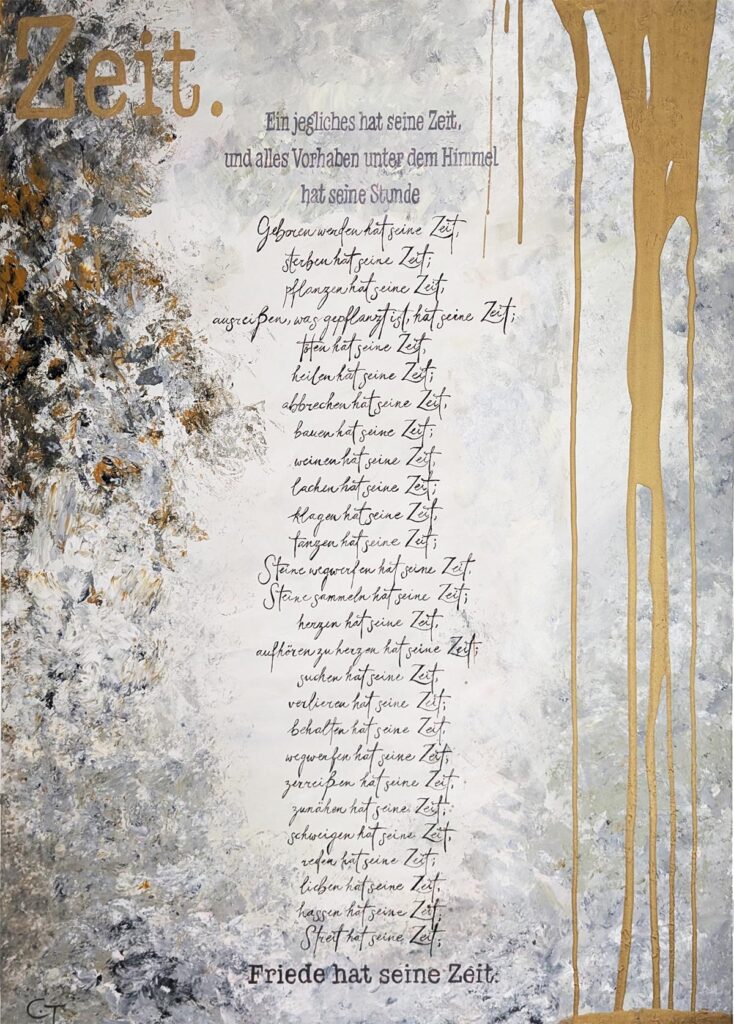 Zeit.
Ein jegliches hat seine Zeit,
und alles Vorhaben unter dem Himmel
hat seine Stunde
Geboren werden hat seine Zeit,
sterben hat seine Zeit;
pflanzen hat seine Zeit,
ausreißen, was gepflanzt ist, hat seine Zeit;
töten hat seine Zeit,
heilen hat seine Zeit;
abbrechen hat seine Zeit,
bauen hat seine Zeit;
weinen hat seine Zeit,
lachen hat seine Zeit;
klagen hat seine Zeit,
tanzen hat seine Zeit;
Steine wegwerfen hat seine Zeit.
Steine sammeln hat seine Zeit;
herzen hat seine Zeit,
aufhören zu herzen hat seine Zeit;
suchen hat seine Zeit,
verlieren hat seine Zeit;
behalten hat seine Zeit,
wegwerfen hat seine Zeit;
zerreißen hat seine Zeit,
zunähen hat seine Zeit;
schweigen hat seine Zeit,
reden hat seine Zeit;
lieben hat seine Zeit,
hassen hat seine Zeit;
Streit hat seine Zeit,
Friede hat seine Zeit.
CT